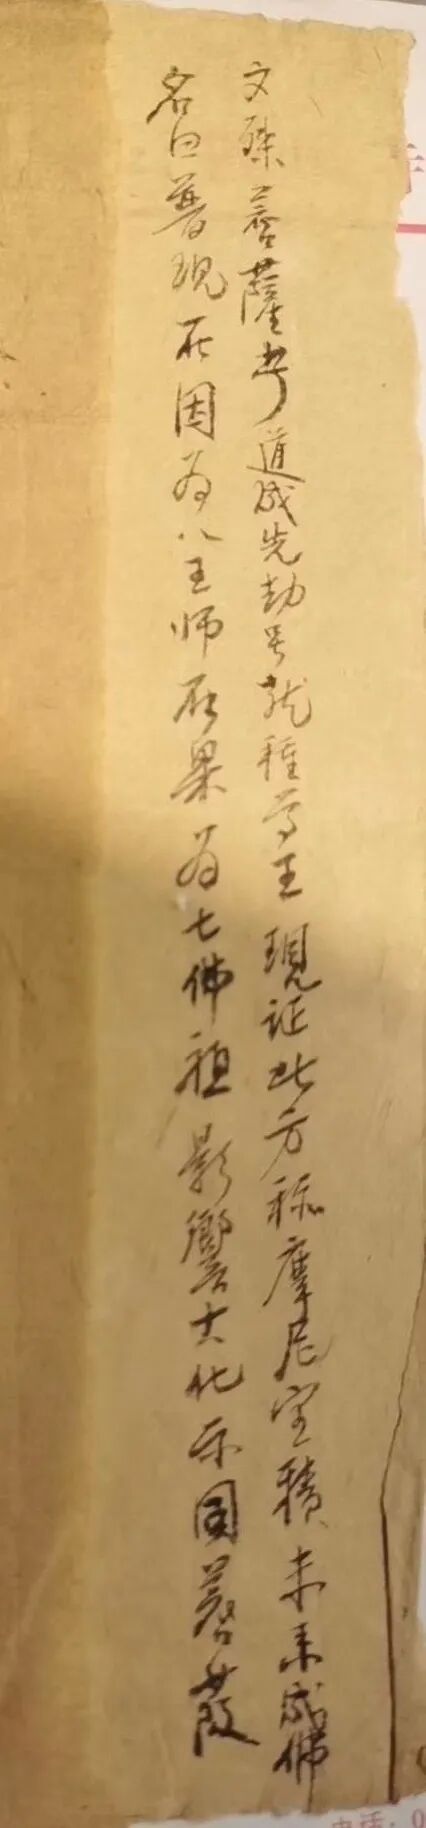 文殊菩薩者道成先劫号龙種尊王現证此方称摩尼宝積未来成佛
名曰普現在因为八王师在果为七佛祖影響大化示同菩薩